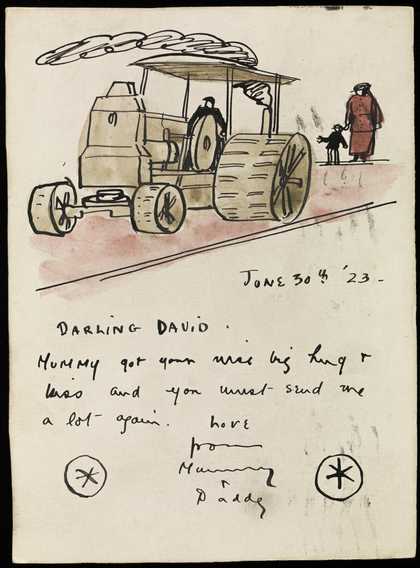 JUNE 30th '23-
DARLING DAVID.
MUMMY got your nice big hug +
kiss and you must send me
a lot again. LOVE
from
Mummy
+
Daddy